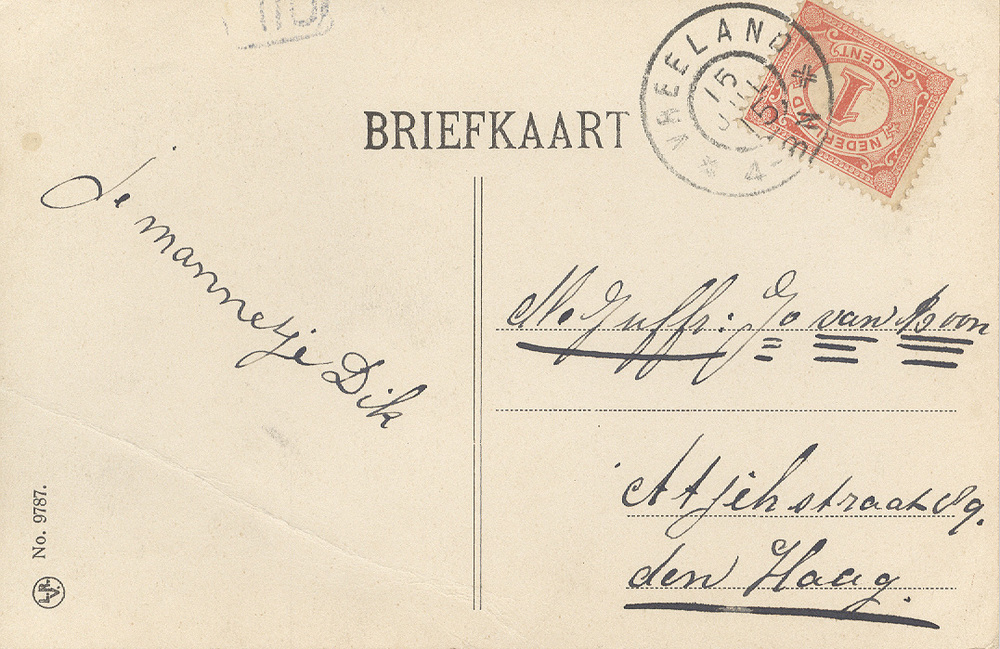 BRIEFKAART
VREELAND
15
4-
NEDERLAND
1 CENT
1
Je mannetje Dik
M. Juffr: Jo van Boon
Atjehstraat 89.
den Haag.
No. 9787.
L.R.
V.